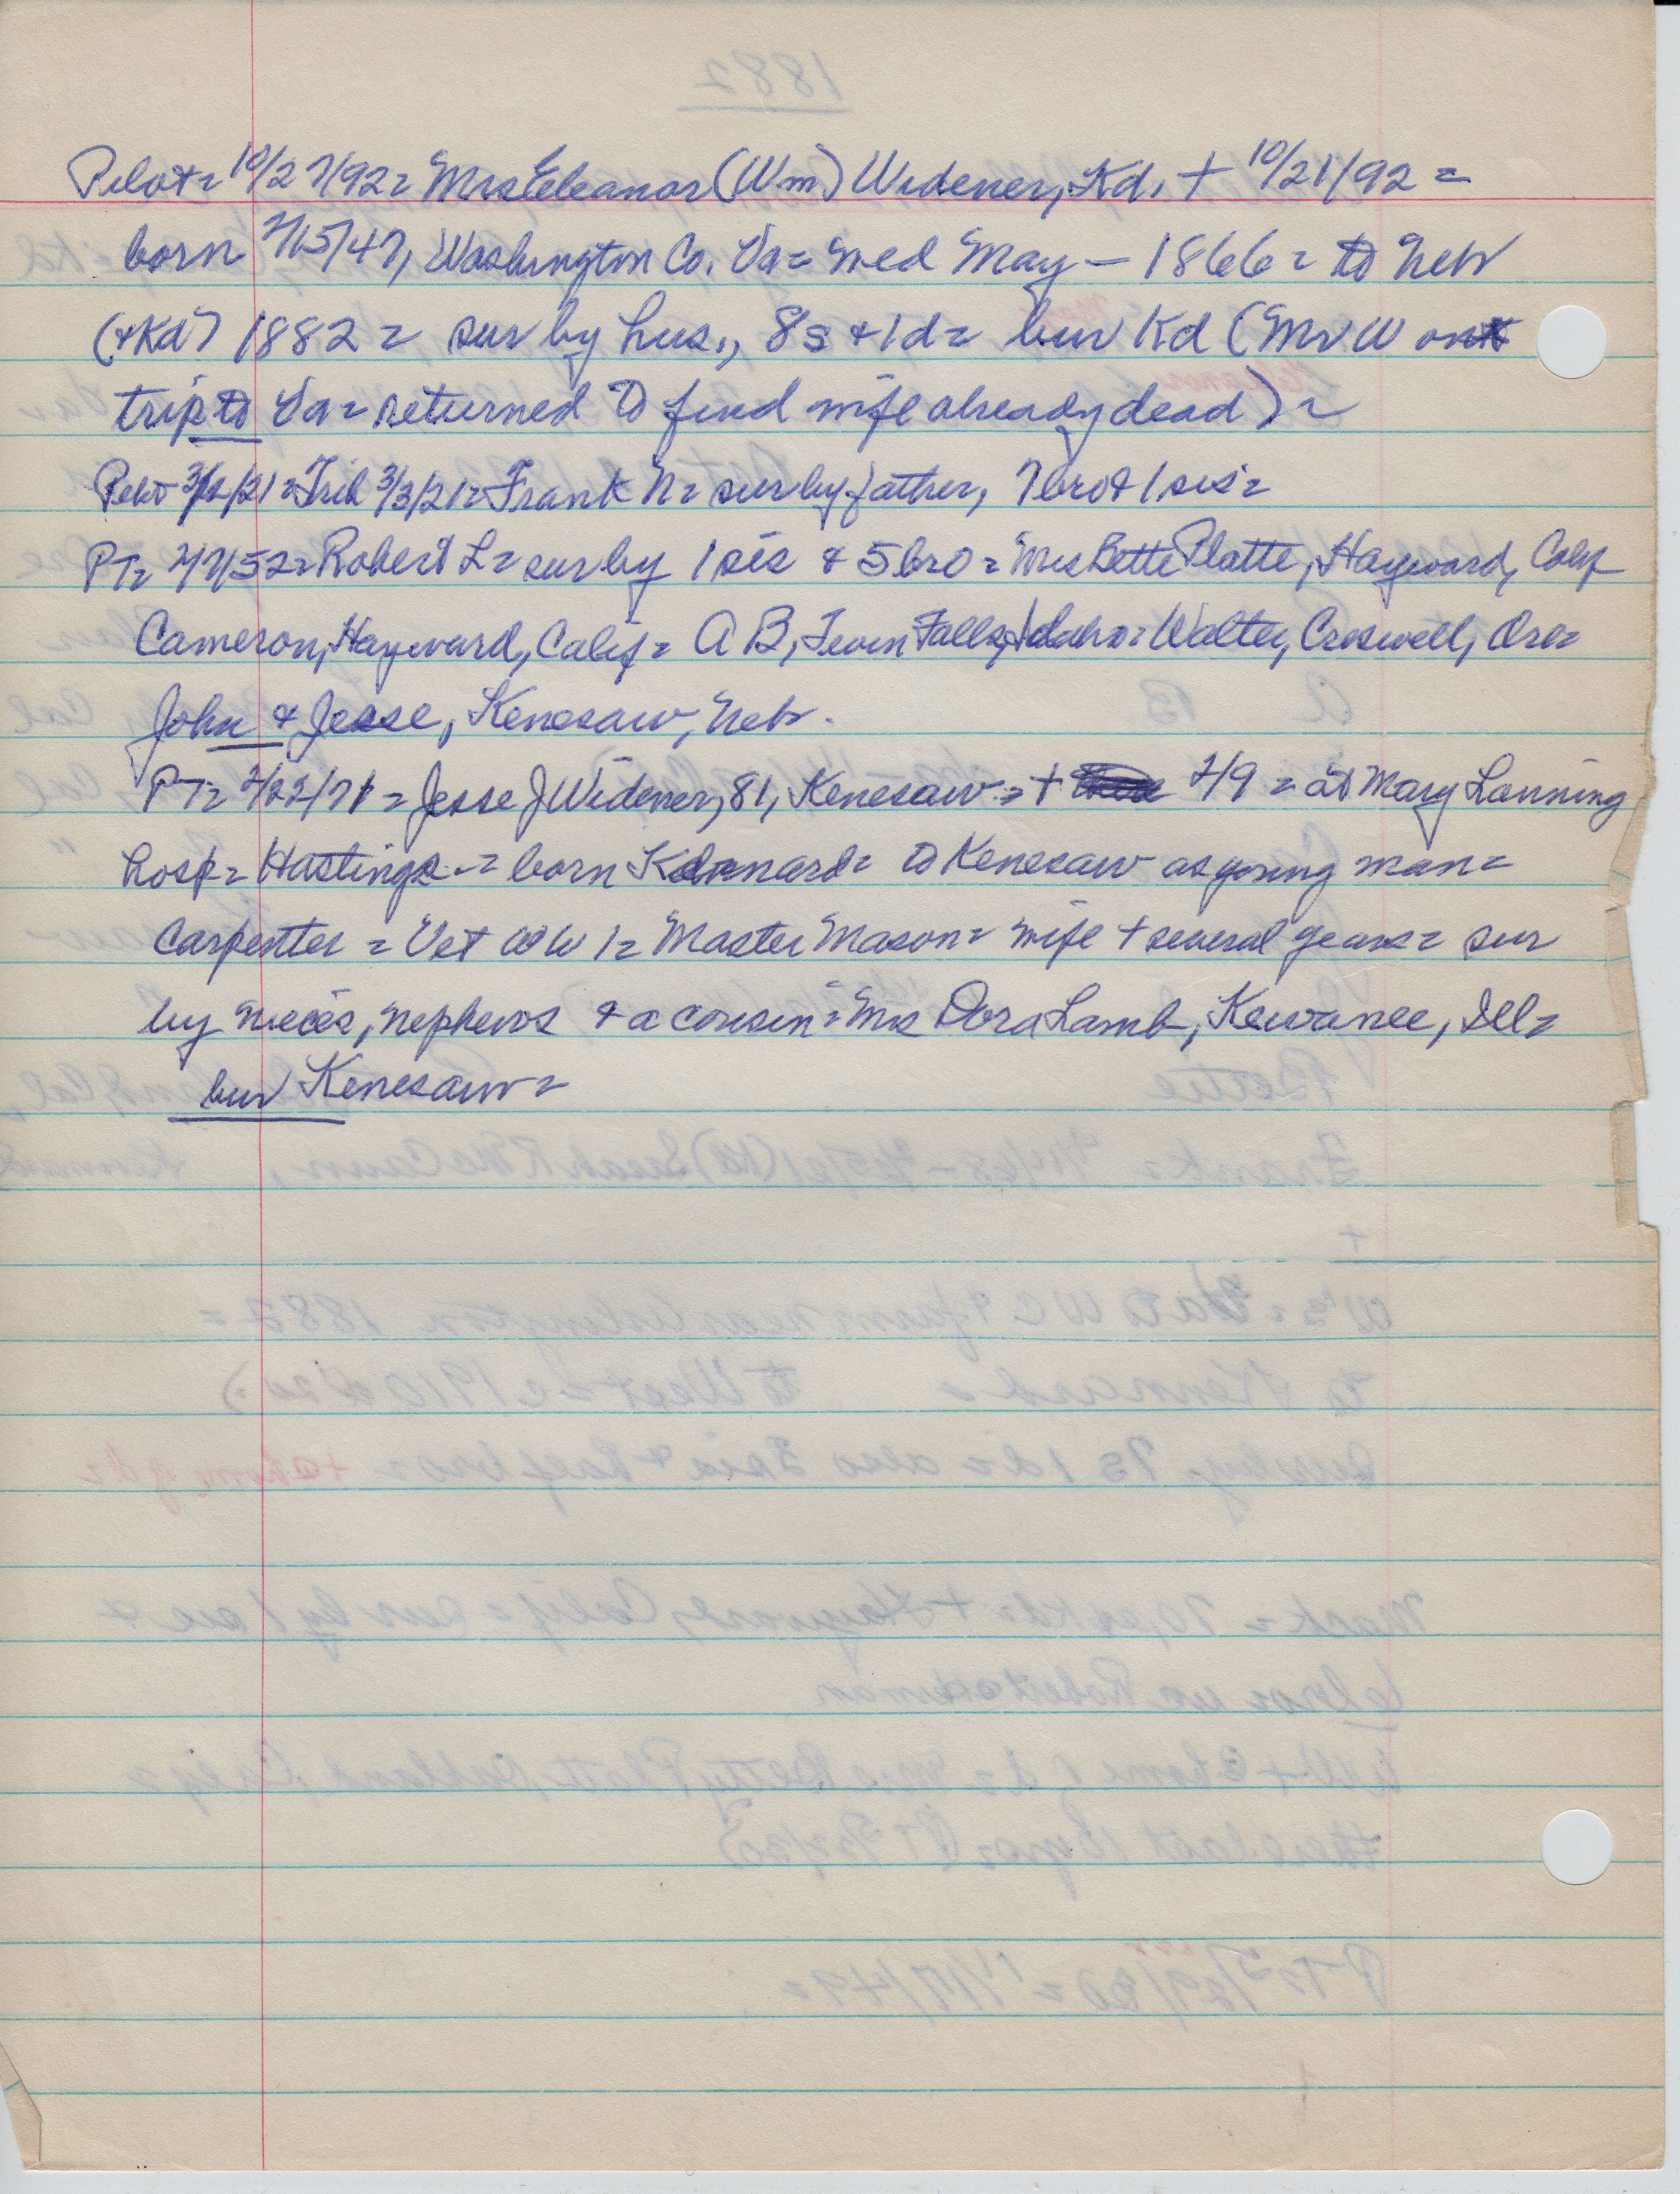 Pilot = 10/27/92 = Mrs Eleanor (Wm) Widener, Kd, + 10/21/92 =
born 2/15/47, Washington Co. Va = med May - 1866 = to Neb
(+Kd) 1882 = sur by hus., 8s + 1d = bur Kd (Mr W on
trip to Va = returned to find wife already dead) =
Pilot 3/2/21 = Trib 3/3/21 = Frank N = sur by father, 7 bro & 1 sis =
PT = 2/7/52 = Robert L = sur by 1 sis & 5 bro = Mrs Bette Platte, Hayward, Calif
Cameron, Hayward, Calif = A B, Twin Falls, Idaho = Walter, Creswell, Ore =
John & Jesse, Kenesaw, Neb.
PT = 2/22/71 = Jesse J Widener, 81, Kenesaw = + 2/9 = at Mary Lanning
hosp = Hastings = born Kennard = to Kenesaw as young man =
Carpenter = Vet WW 1 = Master Mason = wife + several years = sur
by nieces, nephews & a cousin = Mrs Dora Lamb, Kewanee, Ill =
bur Kenesaw =